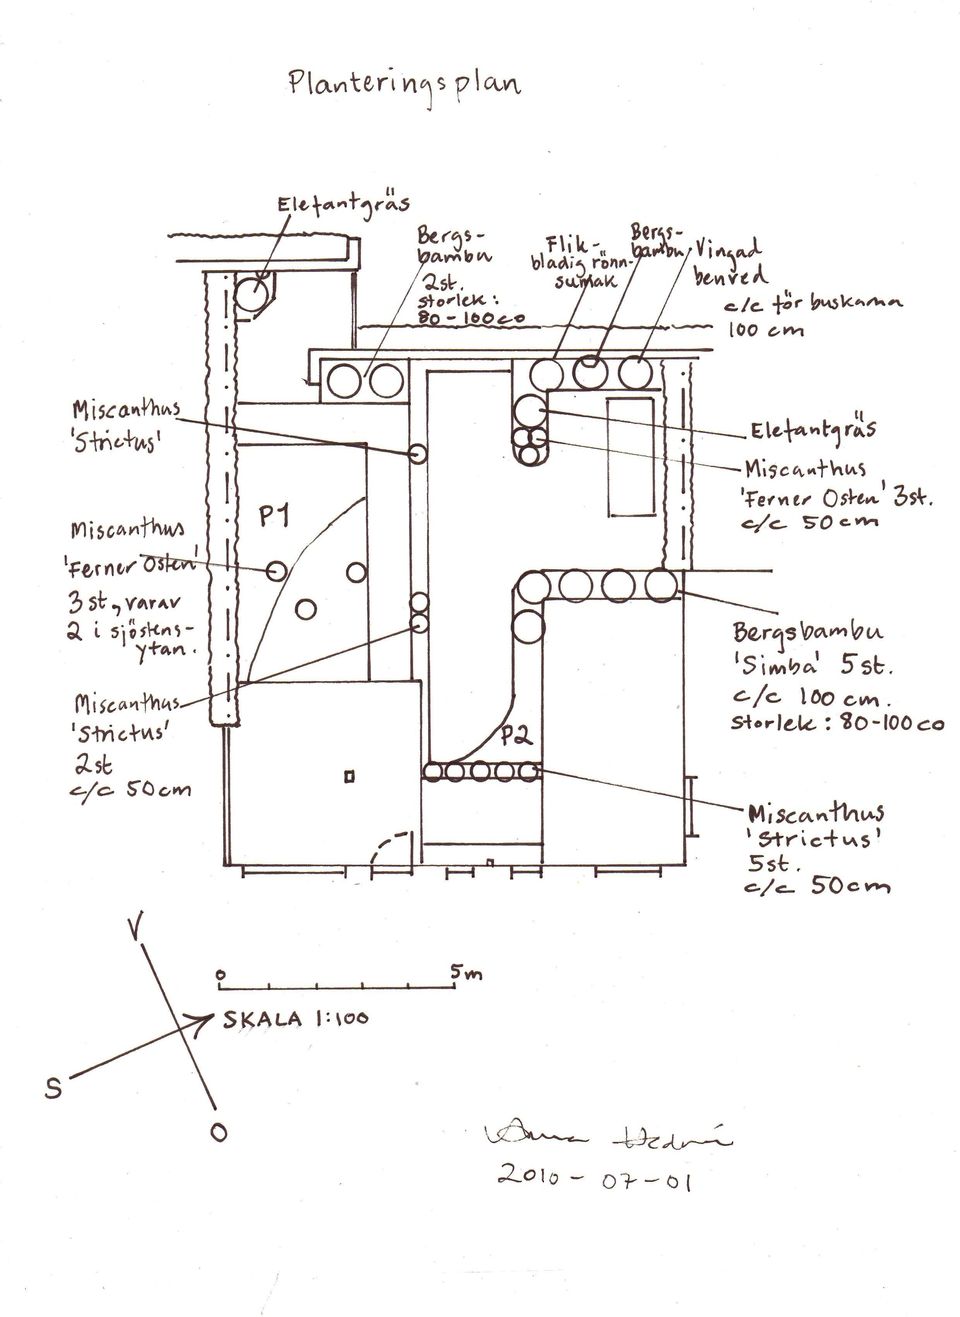 Planteringsplan
Elefantgräs
Bergs-
bambu
2st.
storlek:
80-100co
Flik-
bladig rönn-
sumak
Bergs-
bambu
Vingad
benved
c/c för buskarna
100 cm
Miscanthus
'Strictus'
Elefantgräs
Miscanthus
'Ferner Osten' 3st.
c/c 50cm
P1
Miscanthus
'Ferner Osten'
3st, varav
2 i sjöstens-
ytan.
Bergsbambu
'Simba' 5st.
c/c 100 cm.
Storlek: 80-100co
Miscanthus
'Strictus'
2st
c/c 50cm
P2
Miscanthus
'Strictus'
5st.
c/c 50cm
V
S
O
0 5m
SKALA 1:100
Anna
2010-07-01